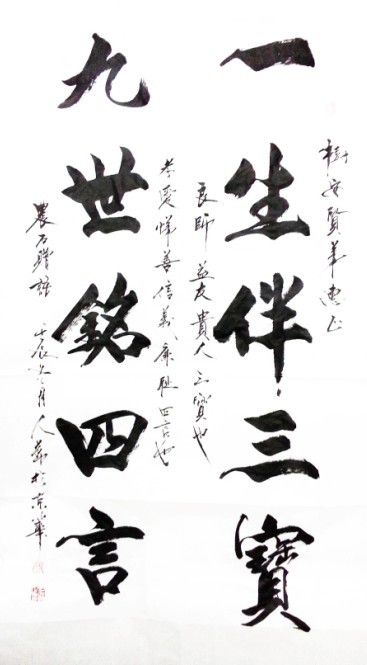 樹安賢弟惠正
一生伴三寶
良師益友貴人三寶也
孝愛慈善信義廉恥四言也
九世銘四言
農石贈語
壬辰冬月人華於京華